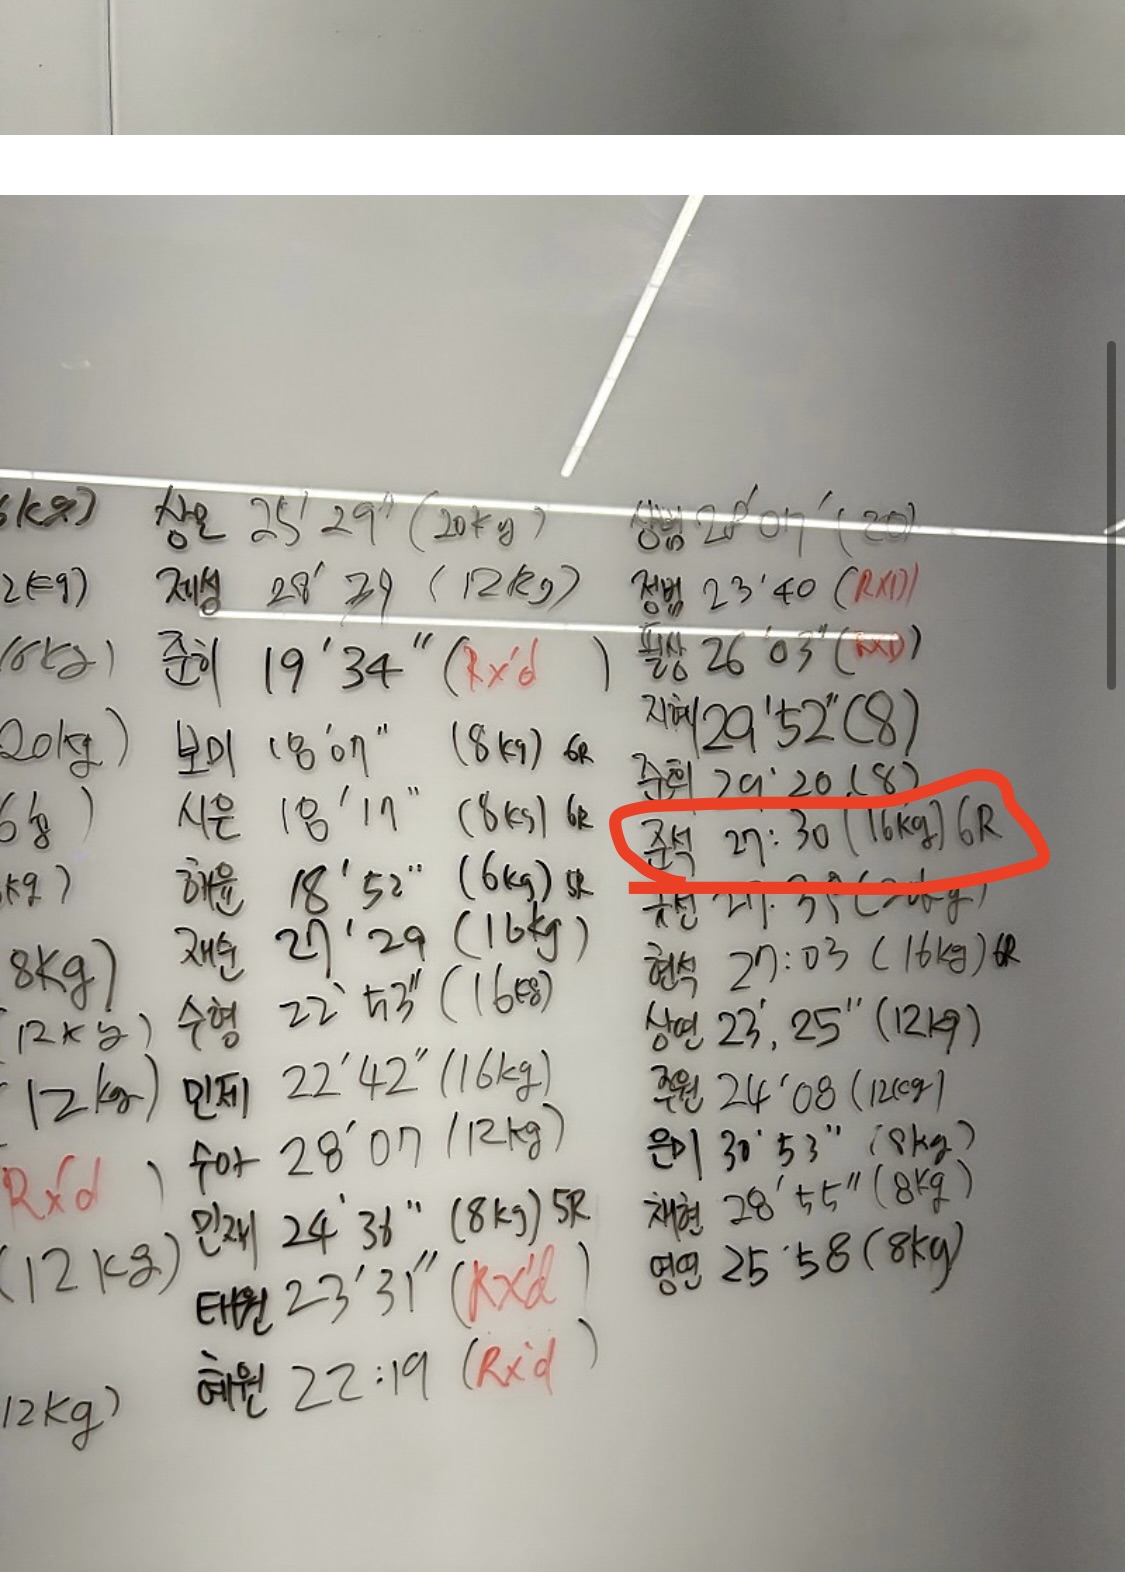 6kg)
2kg)
16kg)
20kg)
6kg)
kg)
8kg)
(12kg)
(12kg)
Rx'd )
(12kg)
12kg)
상은 25'29" (20kg)
제성 28' 39 (12kg)
준히 19'34" (Rx'd )
보미 18'07" (8kg) 6R
시은 18'17" (8kg) 6R
해윤 18'52" (6kg) 5R
재순 27'29 (16kg)
수형 22'53" (16kg)
민제 22'42" (16kg)
수아 28'07 (12kg)
민재 24'36" (8kg) 5R
태원 23'31" (Rx'd )
혜원 22:19 (Rx'd )
상범 28'07' (20)
정범 23'40 (RXD)
26'03" (RXD)
지혜 29'52" (8)
준희 29'20 (8)
준석 27:30 (16kg) 6R
27:
현석 27:03 (16kg) 6R
상연 23', 25" (12kg)
주원 24'08 (12kg)
은미 30'53" (8kg)
채현 28'55" (8kg)
영연 25'58 (8kg)